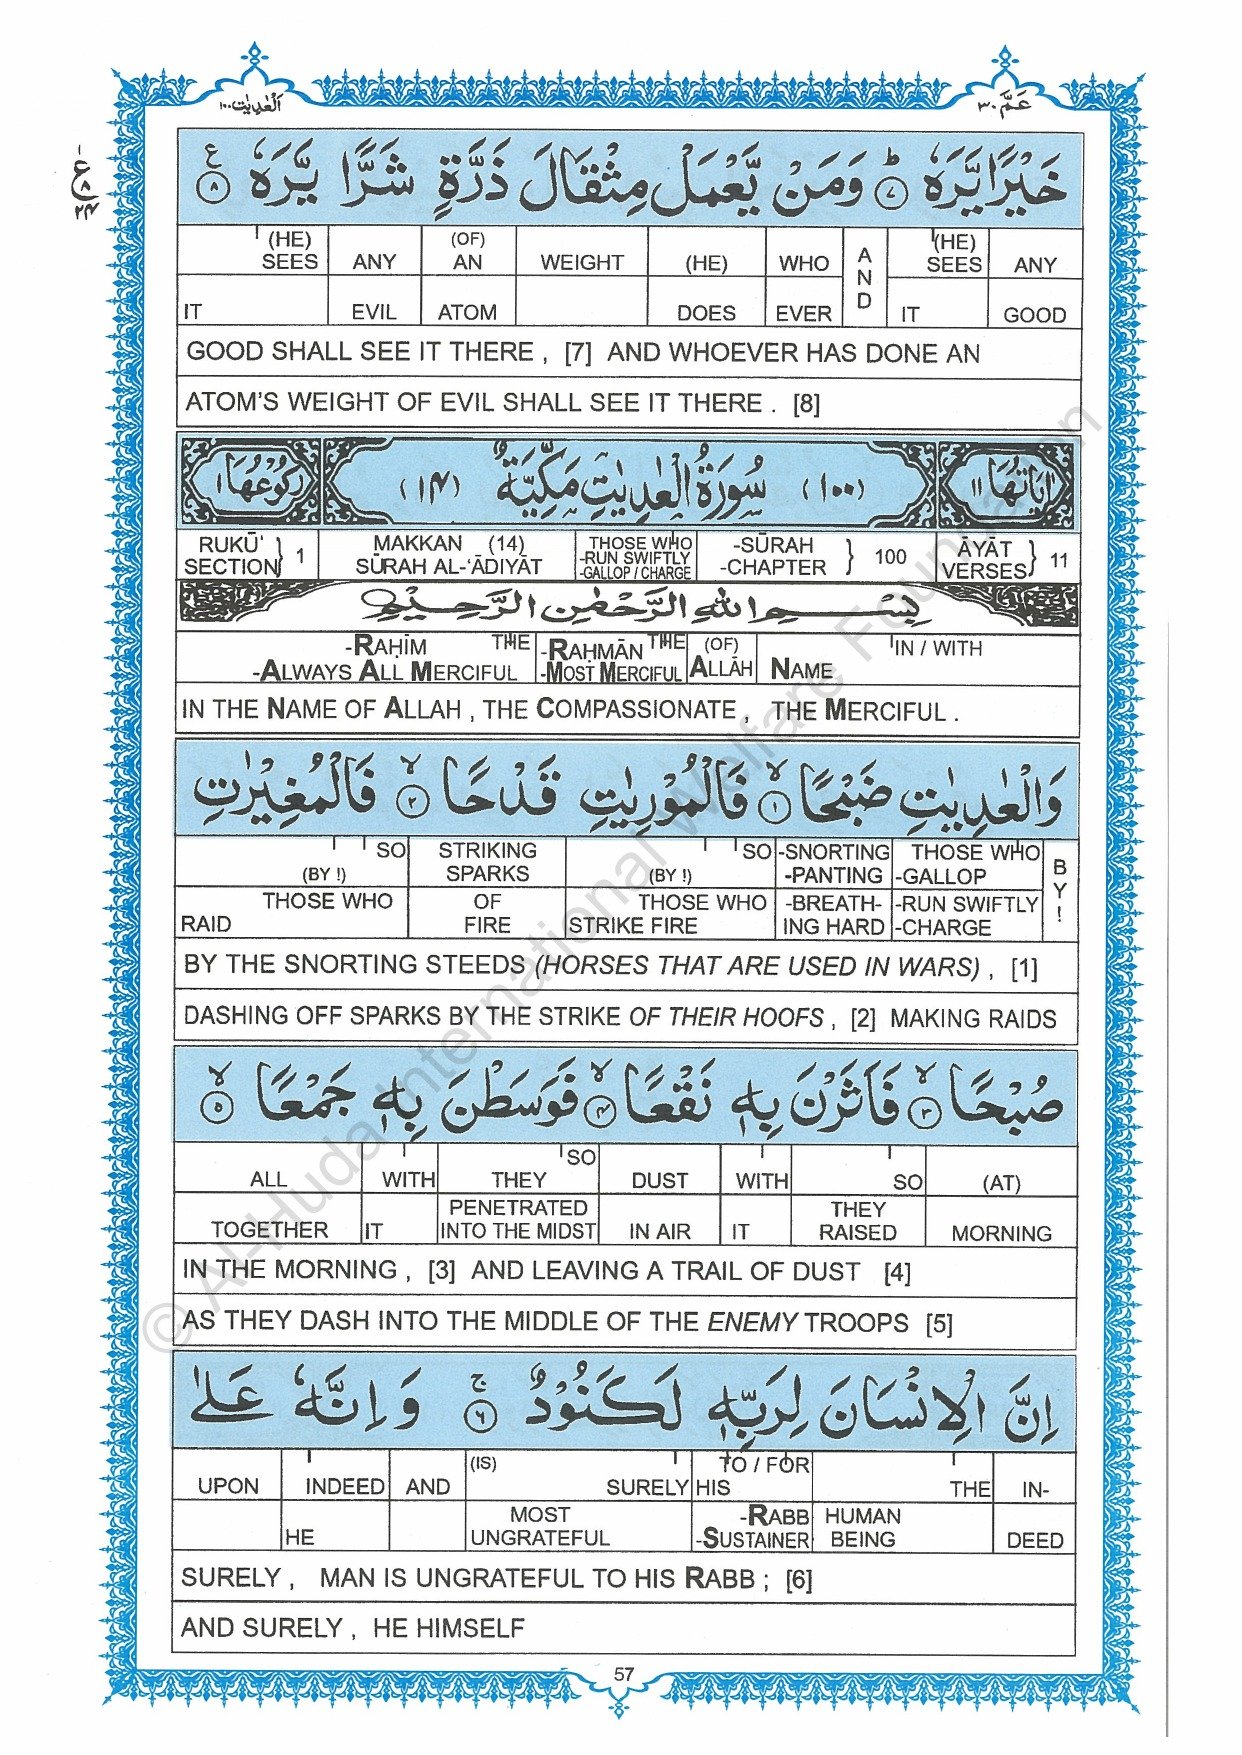 العديت ١٠٠
عم ٣٠
خَيْرًا يَّرَهٗ ۞٧ وَمَنْ يَّعْمَلْ مِثْقَالَ ذَرَّةٍ شَرًّا يَّرَهٗ ۞٨
(HE) SEES ANY (OF) AN WEIGHT (HE) WHO AND (HE) SEES ANY
IT EVIL ATOM DOES EVER IT GOOD
GOOD SHALL SEE IT THERE , [7] AND WHOEVER HAS DONE AN
ATOM'S WEIGHT OF EVIL SHALL SEE IT THERE . [8]
اٰيَاتُهَا ١١ (١٠٠) سُوْرَةُ الْعٰدِيٰتِ مَكِّيَّةٌ (١٤) رُكُوْعُهَا ١
RUKŪ' SECTION } 1 MAKKAN (14) SŪRAH AL-'ĀDIYĀT THOSE WHO -RUN SWIFTLY -GALLOP / CHARGE -SŪRAH -CHAPTER } 100 ĀYĀT VERSES } 11
بِسْمِ اللهِ الرَّحْمٰنِ الرَّحِيْمِ
-RAḤĪM THE -RAḤMĀN THE (OF) IN / WITH
-ALWAYS ALL MERCIFUL -MOST MERCIFUL ALLĀH NAME
IN THE NAME OF ALLAH , THE COMPASSIONATE , THE MERCIFUL .
وَالْعٰدِيٰتِ ضَبْحًا ۙ۞١ فَالْمُوْرِيٰتِ قَدْحًا ۙ۞٢ فَالْمُغِيْرٰتِ
(BY !) SO STRIKING SPARKS (BY !) SO -SNORTING -PANTING THOSE WHO -GALLOP BY!
THOSE WHO RAID OF FIRE THOSE WHO STRIKE FIRE -BREATH-ING HARD -RUN SWIFTLY -CHARGE
BY THE SNORTING STEEDS (HORSES THAT ARE USED IN WARS) , [1]
DASHING OFF SPARKS BY THE STRIKE OF THEIR HOOFS , [2] MAKING RAIDS
صُبْحًا ۙ۞٣ فَاَثَرْنَ بِهٖ نَقْعًا ۙ۞٤ فَوَسَطْنَ بِهٖ جَمْعًا ۙ۞٥
ALL WITH SO THEY DUST WITH SO (AT)
TOGETHER IT PENETRATED INTO THE MIDST IN AIR IT THEY RAISED MORNING
IN THE MORNING , [3] AND LEAVING A TRAIL OF DUST [4]
AS THEY DASH INTO THE MIDDLE OF THE ENEMY TROOPS [5]
اِنَّ الْاِنْسَانَ لِرَبِّهٖ لَكَنُوْدٌ ۚ۞٦ وَاِنَّهٗ عَلٰى
UPON INDEED AND (IS) SURELY TO / FOR HIS THE IN-
HE MOST UNGRATEFUL -RABB -SUSTAINER HUMAN BEING DEED
SURELY , MAN IS UNGRATEFUL TO HIS RABB ; [6]
AND SURELY , HE HIMSELF
57
© Al-Huda International Welfare Foundation